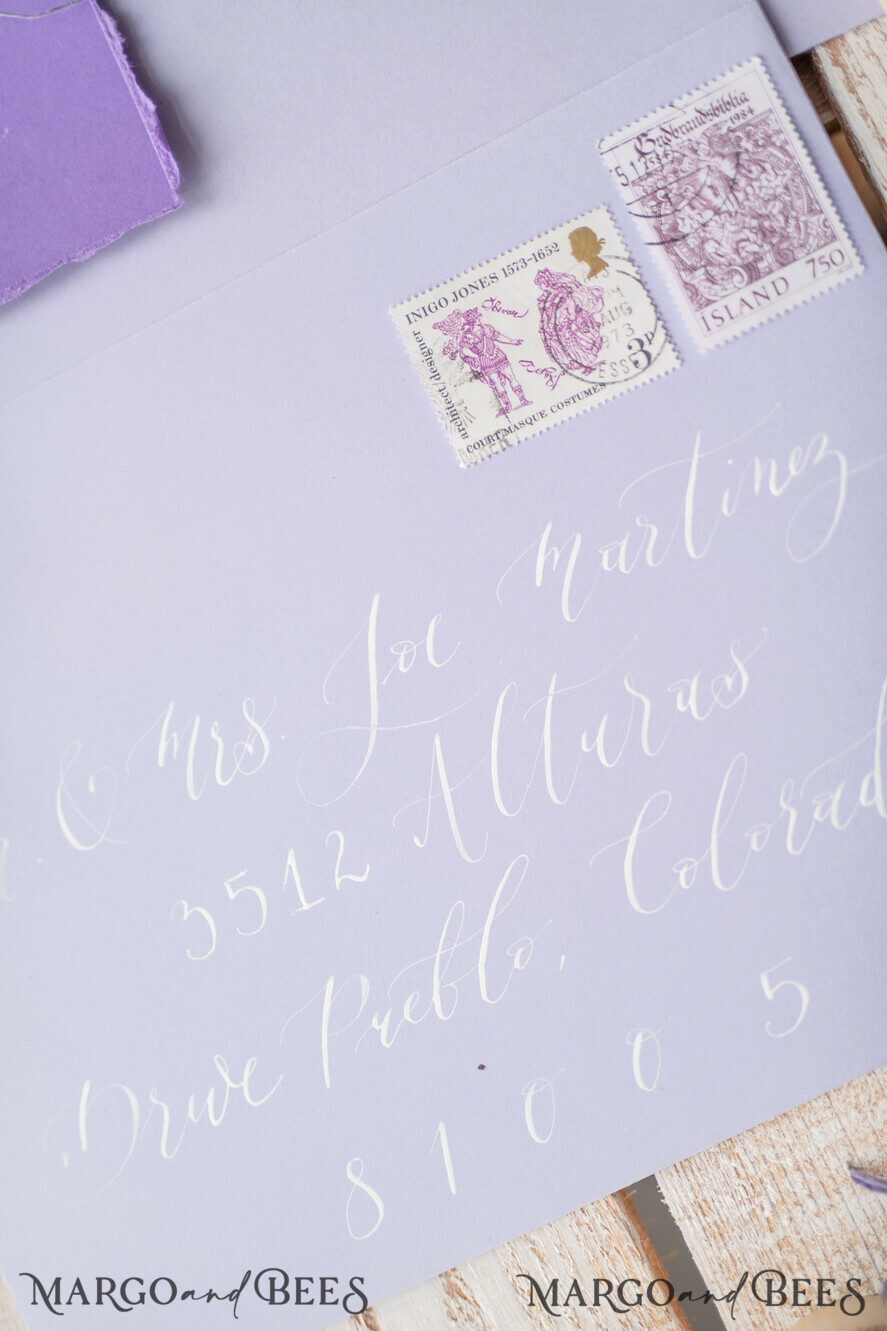 Gudbrandsbiblia
1984
ISLAND 750
INIGO JONES 1573-1652
architect/designer
3P
COURT MASQUE COSTUMES
AUG
1973
& Mrs. Joe Martinez
3512 Alturas
Drive Preblo, Colorad
8 1 0 0 5
MARGO and BEES
MARGO and BEES